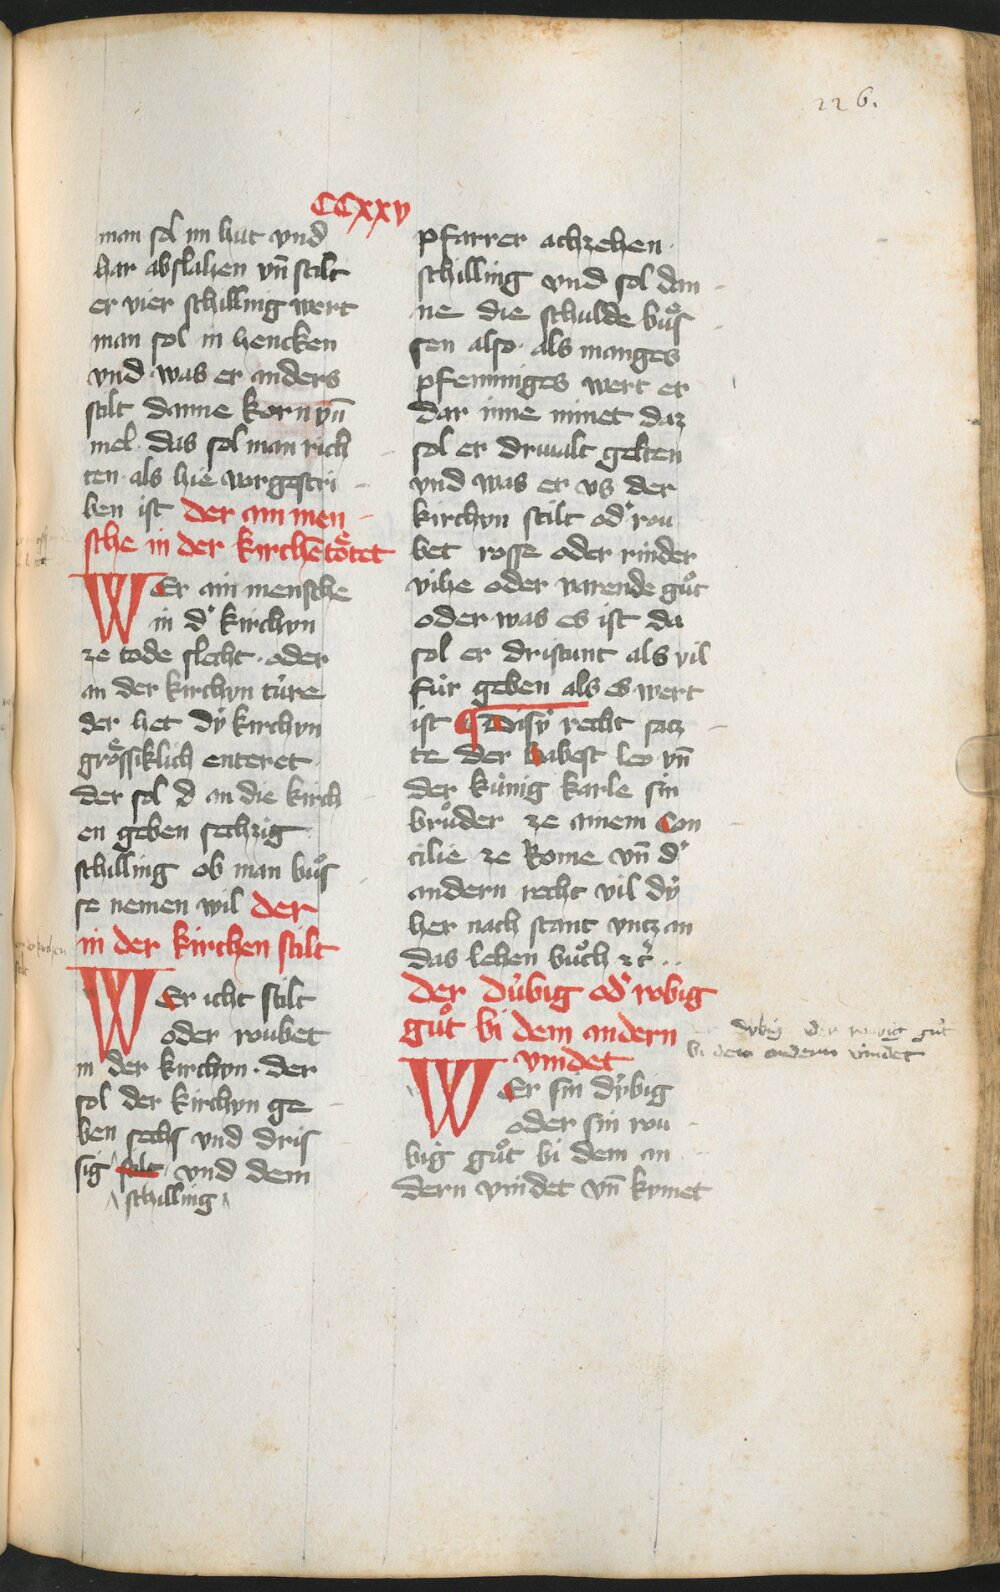 226.
CCxxv
man sol im hut vnd
har abslahen vn̄ stilt
er vier schilling wert
man sol in hencken
vnd was er anders
stilt danne korn vn̄
mel · das sol man rich
ten · als hie vorgeschri
ben ist der ain men
sche in der kirchē toͤtet
WEr ain mensche
in d' kirchyn
ze tode slecht · oder
an der kirchyn tuͥre
der het dÿ kirchyn
groͤssiklich enteret
der sol d an die kirch
en geben sechzig
schilling ob man buͦs
se nemen wil der
in der kirchen stilt
WEr icht stilt
oder roubet
in der kirchyn · der
sol der kirchyn ge
ben sechs vnd dris
sig stilt vnd dem
schilling
pfarrer achzehen
schilling vnd sol dan
ne die schulde buͦs
sen also · als manges
pfenniges wert er
dar inne nimet daz
sol er drivalt gelten
vnd was er vs der
kirchyn stilt od' rou
bet rosse oder rinder
vihe oder varende guͦt
oder was es ist da
sol er dristunt als vil
fuͥr geben als es wert
ist ¶ Disÿ recht satz
te der babest leo vn̄
der kuͥnig karle sin
bruͦder ze ainem Con
cilie ze Rome vn̄ d'
andern recht vil dÿ
her nach stant vntz an
das lehen buͦch ⁊c̄ ..
der duͥbig od' robig
guͦt bi dem andern
vindet
WEr sin dÿbig
oder sin rou
big guͦt bi dem an
dern vindet vn̄ kymet
dÿbig der rouvig guͦt
bi dem andern vindet